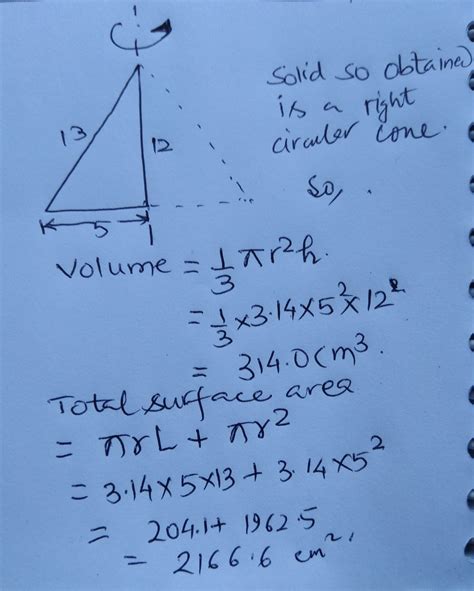 13
12
5
Solid so obtained
is a right
circular cone.
So, .
Volume = 1/3 πr²h.
= 1/3 × 3.14 × 5² × 12²
= 314.0 cm³.
Total surface area
= πrL + πr²
= 3.14 × 5 × 13 + 3.14 × 5²
= 204.1 + 1962.5
= 2166.6 cm².